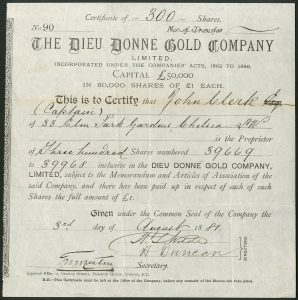 Certificate of 300 Shares.
No. 90
No. of Transfer
THE DIEU DONNÉ GOLD COMPANY
LIMITED.
INCORPORATED UNDER THE COMPANIES' ACTS, 1862 TO 1880.
CAPITAL £50,000
IN 50,000 SHARES OF £1 EACH.
This is to Certify that John Clerk
(Captain)
of 33 Elm Park Gardens Chelsea SW
is the Proprietor
of Three hundred Shares numbered 39669
to 39968 inclusive in the DIEU DONNÉ GOLD COMPANY,
LIMITED, subject to the Memorandum and Articles of Association of the
said Company, and there has been paid up in respect of each of such
Shares the full amount of £1.
Given under the Common Seal of the Company the
3rd day of August 1881
H Duncan
DIRECTORS
Secretary.
N.B.—This Certificate must be left at the Office of the Company, before any Transfer of the Shares can take place.